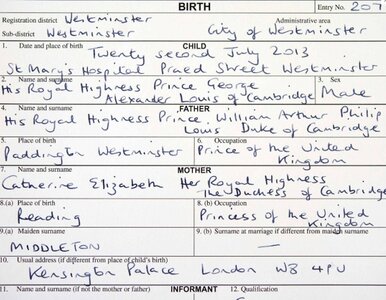 BIRTH Entry No. 207
Registration district Westminster Administrative area
Sub-district Westminster City of Westminster
1. Date and place of birth CHILD
Twenty second July 2013
St Mary's Hospital Praed Street Westminster
2. Name and surname 3. Sex
His Royal Highness Prince George Male
Alexander Louis of Cambridge
4. Name and surname FATHER
His Royal Highness Prince William Arthur Philip
Louis Duke of Cambridge
5. Place of birth 6. Occupation
Paddington Westminster Prince of the United
Kingdom
7. Name and surname MOTHER
Catherine Elizabeth Her Royal Highness
The Duchess of Cambridge
8.(a) Place of birth 8. (b) Occupation
Reading Princess of the United
Kingdom
9.(a) Maiden surname 9. (b) Surname at marriage if different from maiden surname
MIDDLETON —
10. Usual address (if different from place of child's birth)
Kensington Palace London W8 4PU
11. Name and surname (if not the mother or father) INFORMANT 12. Qualification